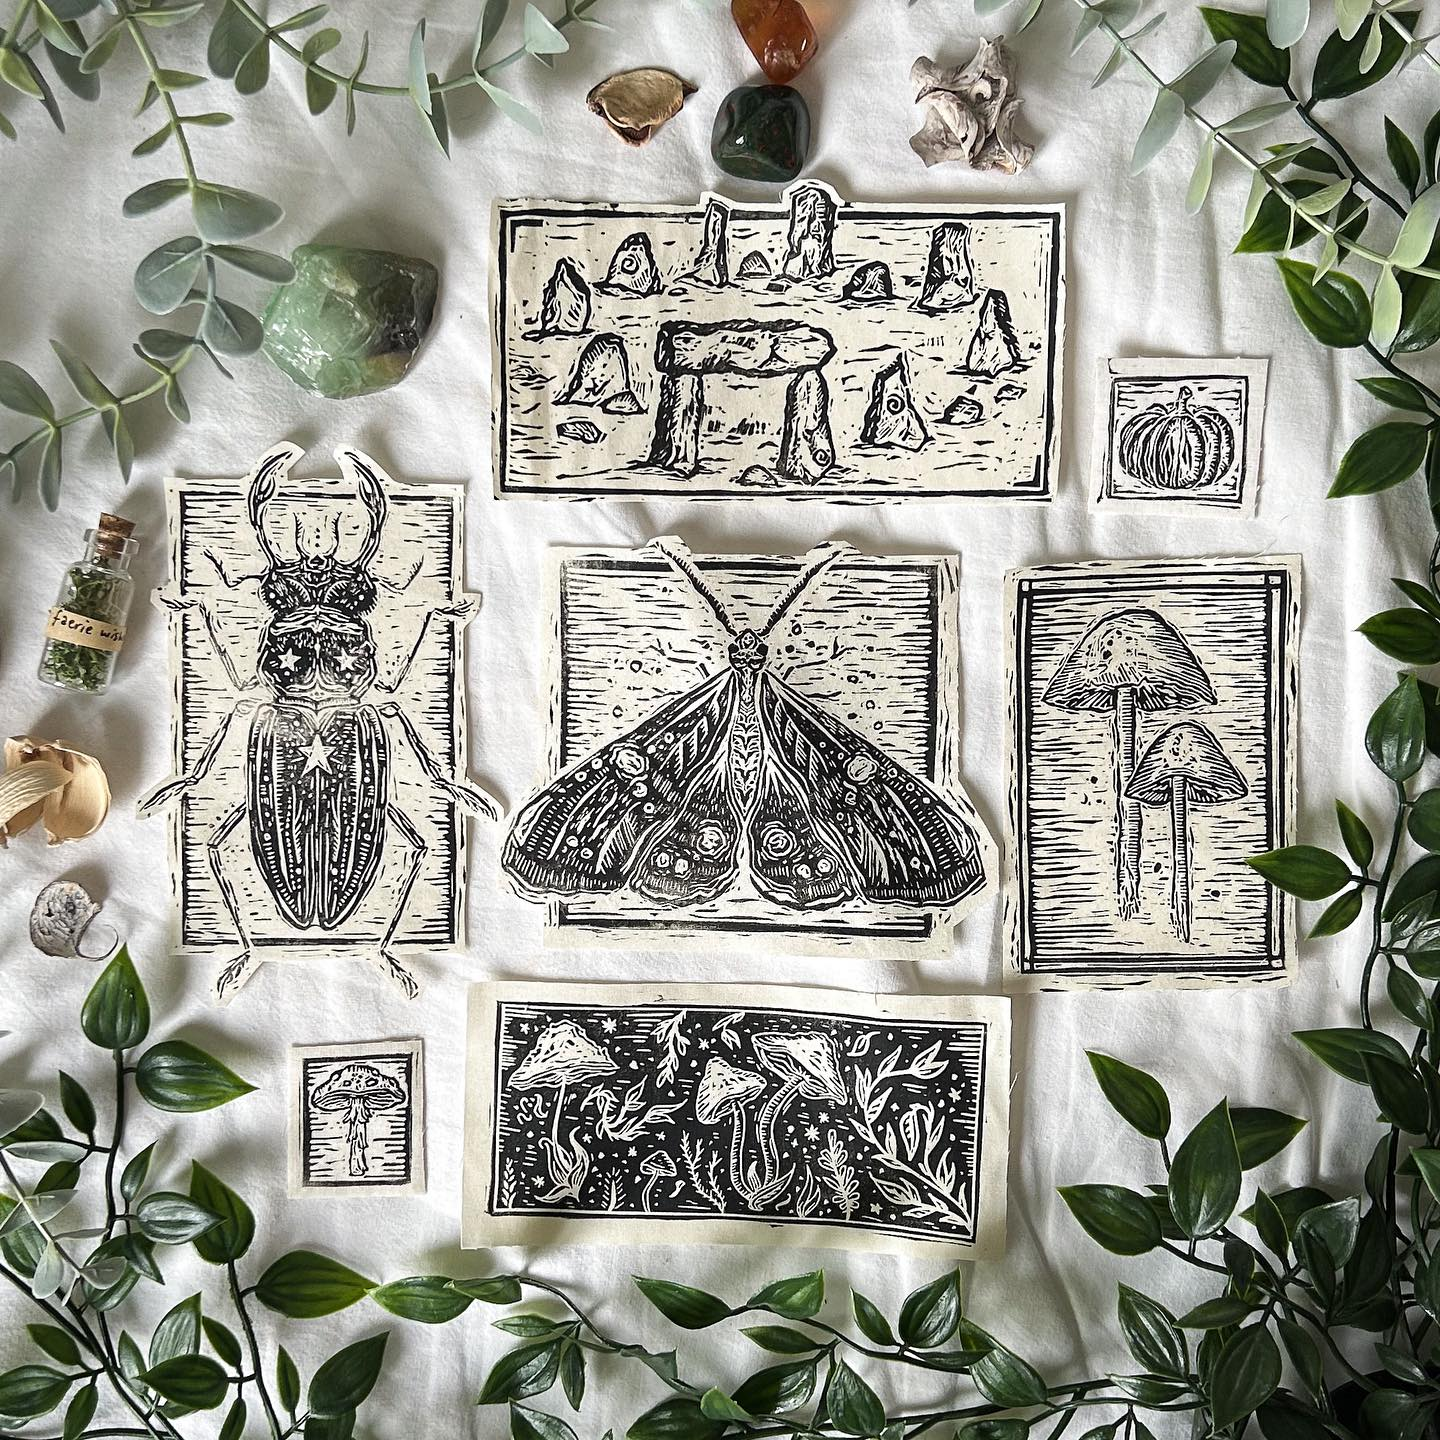 faerie wish